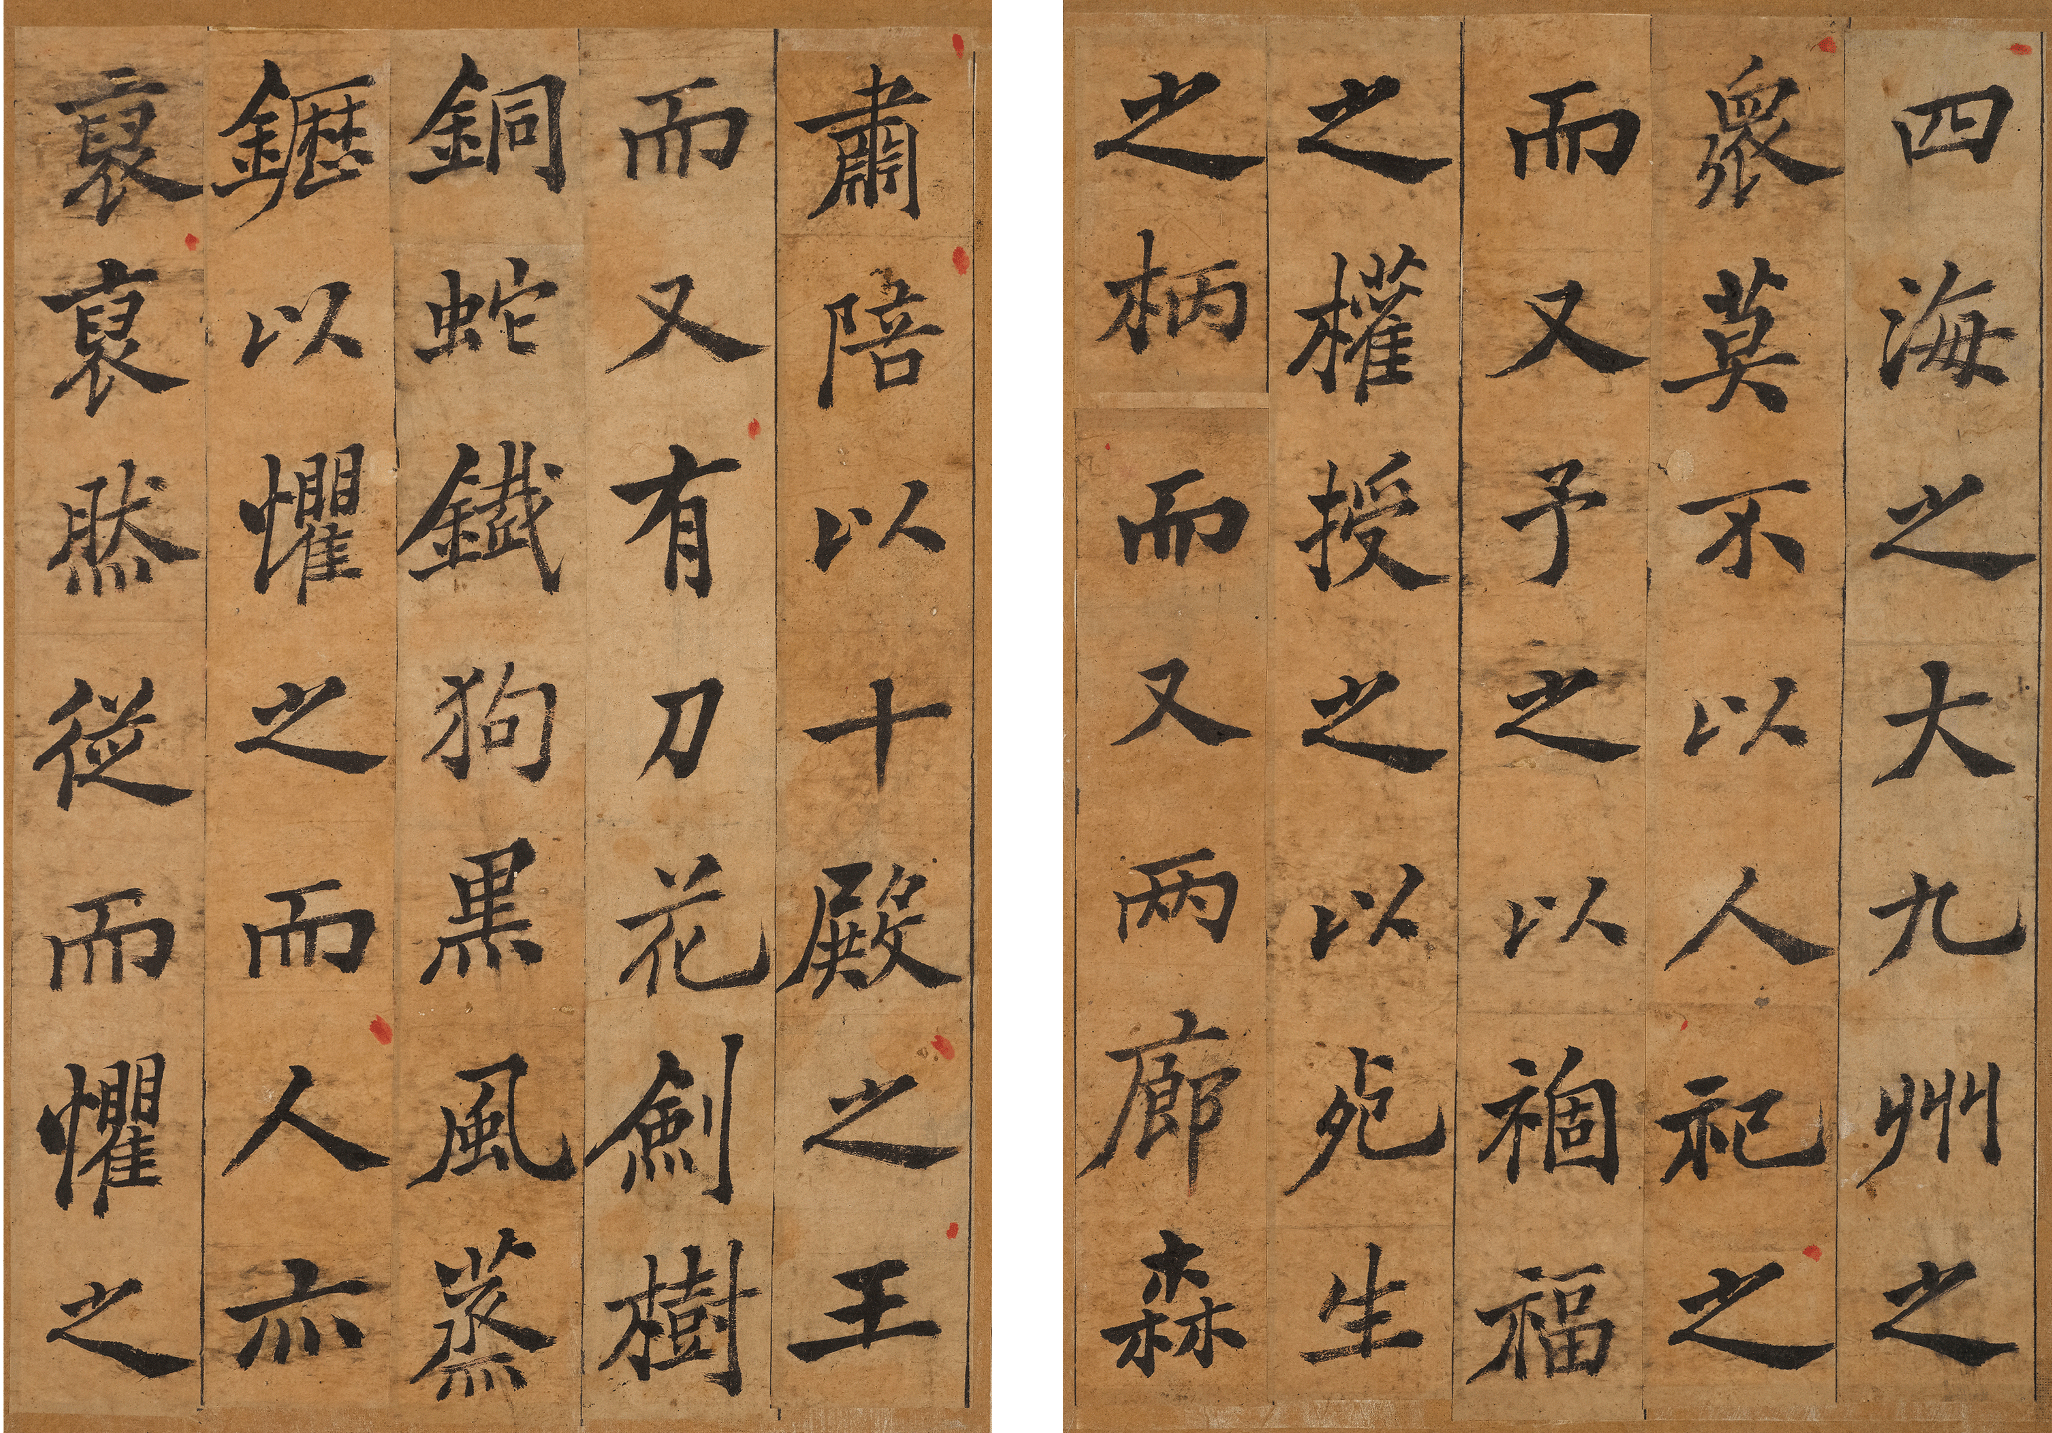 四海之大九州之
衆莫不以人祀之
而又予之以祻福
之權授之以死生
之柄而又两廊森
肅陪以十殿之王
而又有刀花劍樹
銅蛇鐵狗黑風蒸
䥶以懼之而人亦
裒裒然從而懼之